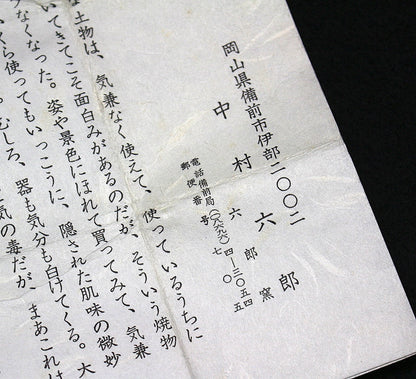 岡山県備前市伊部二〇〇二
中村六郎
六郎窯
電話備前局(〇八六九六)四―三〇五四
郵便番号七〇五
は、気兼なく使えて、使っているうちに
いてきてこそ面白みがあるのだが、そういう焼物
なくなった。姿や景色にほれて買ってみて、気兼
くら使ってもいっこうに、隠された肌味の微妙
むしろ、器も気分も白けてくる。大
気の毒だが、まあこれは